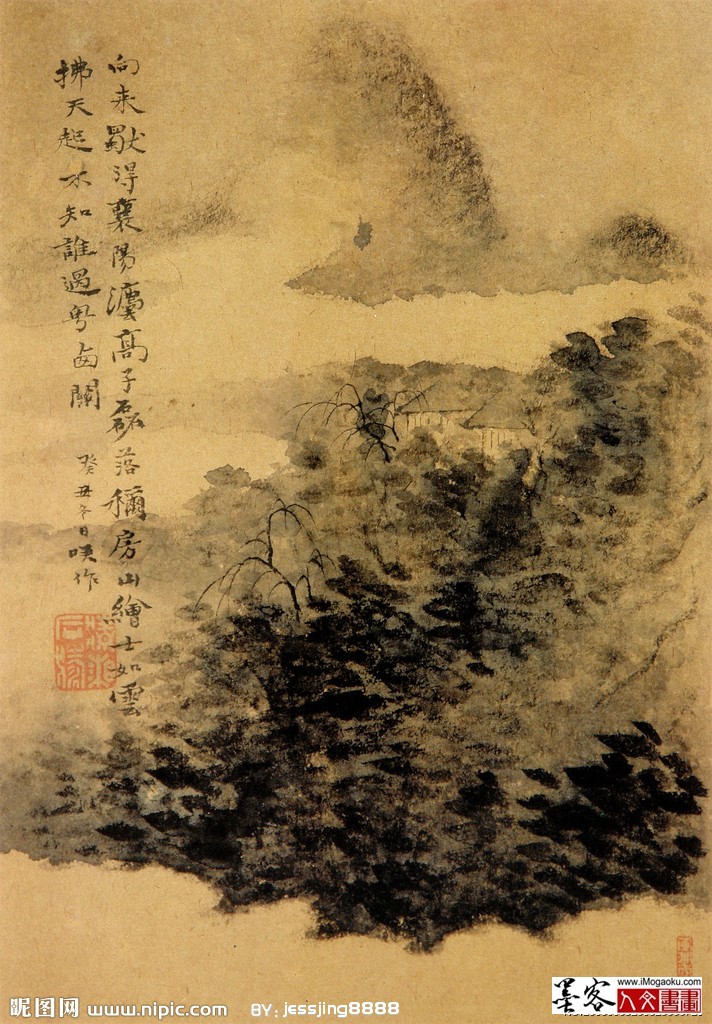 向来歇得襄陽灋高子磊落稱房山繪士如雲
拂天起不知誰過粤西關
癸丑冬日咲作
昵图网 www.nipic.com BY: jessjing8888
墨客
www.iMogaoku.com
人文書畫